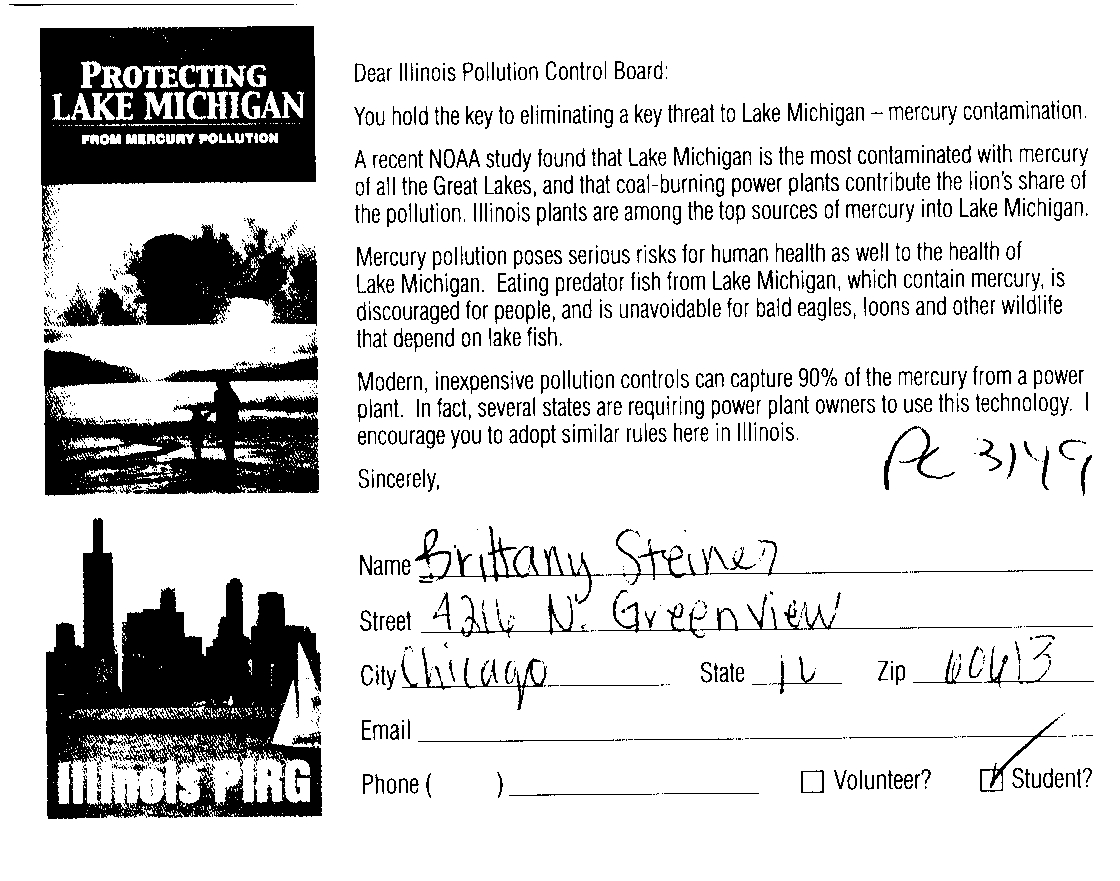 PROTECTING
LAKE MICHIGAN
FROM MERCURY POLLUTION
Dear Illinois Pollution Control Board:
You hold the key to eliminating a key threat to Lake Michigan – mercury contamination.
A recent NOAA study found that Lake Michigan is the most contaminated with mercury
of all the Great Lakes, and that coal-burning power plants contribute the lion's share of
the pollution. Illinois plants are among the top sources of mercury into Lake Michigan.
Mercury pollution poses serious risks for human health as well to the health of
Lake Michigan. Eating predator fish from Lake Michigan, which contain mercury, is
discouraged for people, and is unavoidable for bald eagles, loons and other wildlife
that depend on lake fish.
Modern, inexpensive pollution controls can capture 90% of the mercury from a power
plant. In fact, several states are requiring power plant owners to use this technology. I
encourage you to adopt similar rules here in Illinois.
PC 3149
Sincerely,
Name Brittany Steiner
Street 4216 N. Greenview
City Chicago State IL Zip 60613
Email
Phone ( )
Volunteer? Student?
Illinois PIRG